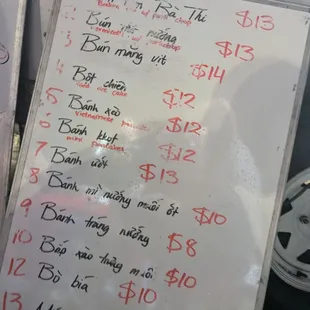 Bà Thi $13
Bún thịt nướng $13
3 Bún măng vịt $14
4 Bột chiên $12
rice cake
5 Bánh xèo $12
vietnamese pancakes
6 Bánh khọt $12
mini pancakes
7 Bánh ướt $13
8 Bánh mì nướng muối ớt $10
9 Bánh tráng nướng $8
10 Bắp xào trứng muối $10
12 Bò bía $10
13